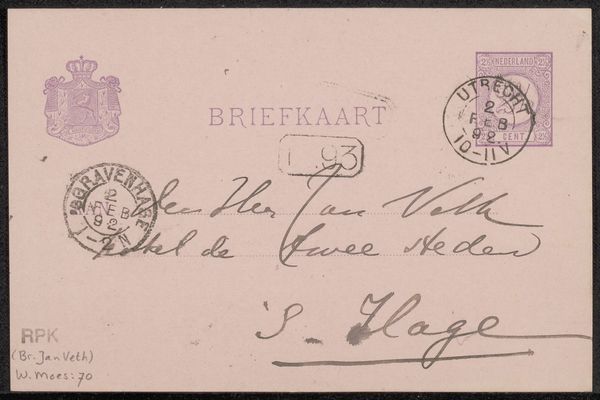 NEDERLAND
2½ 2½
CENT. 2½
UTRECHT
2
FEB
92
10-11V
BRIEFKAART
93
'SGRAVENHAGE
2
FEB
92
1-2N
Den Heer Jan Veth
Hotel de Twee Steden
S' Hage
RPK
(Br. Jan Veth)
W. Moes: 70